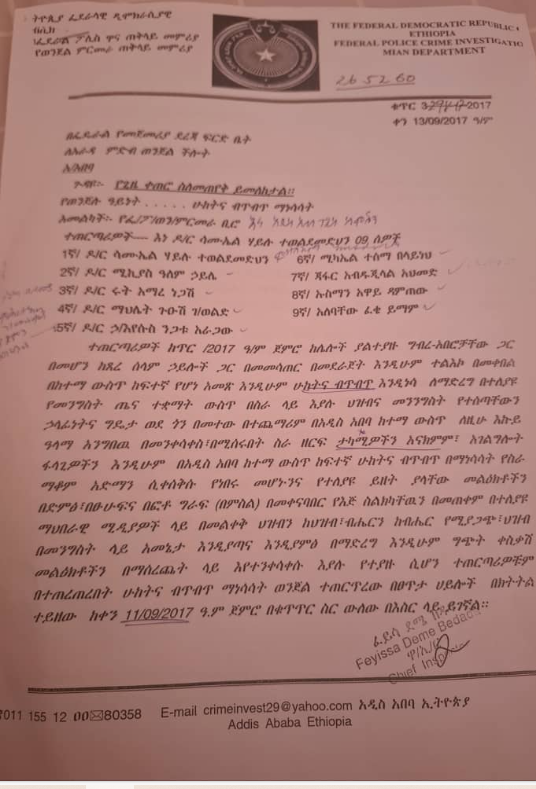 ትዮጲያ ፌደራላዊ ዲሞክራሲያዊ
ፌደራል ፖሊስ ዋና ጠቅላይ መምሪያ
የወንጀል ምርመራ ጠቅላይ መምሪያ
THE FEDERAL DEMOCRATIC REPUBLIC
ETHIOPIA
FEDERAL POLICE CRIME INVESTIGATIO
MIAN DEPARTMENT
ቁጥር 2017
ቀን 13/09/2017 ዓ/ም
በፌዴራል የመጀመሪያ ደረጃ ፍርድ ቤት
ለአራዳ ምድብ ወንጀል ችሎት
አ/አበባ
ጉዳዩ፡- የጊዜ ቀጠሮ ስለመጠየቅ ይመለከታል፡፡
የወንጀሉ ዓይነት . . . . . ሁከትና ብጥብጥ ማነሳሳት
አመልካች፡- የፌ/ፖ/ወን/ምርመራ ቢሮ
ተጠርጣሪዎች---- እነ ዶ/ር ሳሙኤል ሃይሉ ተወልደመድህን 09 ሰዎች
1ኛ/ ዶ/ር ሳሙኤል ሃይሉ ተወልደመድህን 6ኛ/ ሚካኤል ተሰማ በላይነህ
2ኛ/ ዶ/ር ሚኪያስ ዓለም ኃይሌ 7ኛ/ ጃፋር አብዱጂላል አህመድ
3ኛ/ ዶ/ር ሩት አማረ ነጋሽ 8ኛ/ ኡስማን አዋይ ዳምጠው
4ኛ/ ዶ/ር ማህሌት ጉውሽ ገ/ወልድ 9ኛ/ አለባቸው ፈቄ ይማም
5ኛ/ ዶ/ር ኃ/እየሱስ ንጋቱ አራጋው
ተጠርጣሪዎች ከጥር /2017 ዓ/ም ጀምሮ ከሌሎች ያልተያዙ ግብረ-አበሮቻቸው ጋር
በመሆን ከጸረ ሰላም ኃይሎች ጋር በመመሳጠር በመደራጀት እንዲሁም ተልእኮ በመቀበል
በከተማ ውስጥ ከፍተኛ የሆነ አመጽ እንዲሁም ሁከትና ብጥብጥ እንዲነሳ ለማድረግ በተለያዩ
የመንግስት ጤና ተቋማት ውስጥ በስራ ላይ እያሉ ህዝብና መንግስት የተሰጣቸውን
ኃላፊነትና ግዴታ ወደ ጎን በመተው በተጨማሪም በአዲስ አበባ ከተማ ውስጥ ለዚሁ እኩይ
ዓላማ አንግበዉ በመንቀሳቀስ፣በሚሰሩበት ስራ ዘርፍ ታካሚዎችን አናክምም፣ አገልግሎት
ፋላጊዎችን እንዲሁም በአዲስ አበባ ከተማ ውስጥ ከፍተኛ ሁከትና ብጥብጥ በማነሳሳት የስራ
ማቆም አድማን ሲቀሰቅሱ የነበሩ መሆኑንና የተለያዩ ይዘት ያላቸው መልዕክቶችን
በድምፅ፣በፁሁፍና በፎቶ ግራፍ (በምስል) በመቀናባበር የእጅ ስልካቸዉን በመጠቀም በተለያዩ
ማህበራዊ ሚዲያዎች ላይ በመልቀቅ ህዝብን ከህዝብ፣ብሔርን ከብሔር የሚያጋጭ፣ህዝብ
በመንግስት ላይ አመኔታ እንዲያጣና እንዲያምፅ በማድረግ እንዲሁም ግጭት ቀስቃሽ
መልዕክቶችን በማሰረጨት ላይ እየተንቀሳቀሱ እያሉ የተያዙ ሲሆን ተጠርጣሪዎቹም
በተጠረጠሩበት ሁከትና ብጥብጥ ማነሳሳት ወንጀል ተጠርጥረው በፀጥታ ሀይሎች በክትትል
ተይዘው ከቀን 11/09/2017 ዓ.ም ጀምሮ በቁጥጥር ስር ውለው በእስር ላይ ይገኛል፡፡
ፈይሳ ደሜ
Feyissa Deme Bedada
Chief Insp
011 155 12 00✉80358 E-mail crimeinvest29@yahoo.com አዲስ አበባ ኢትዮጵያ
Addis Ababa Ethiopia